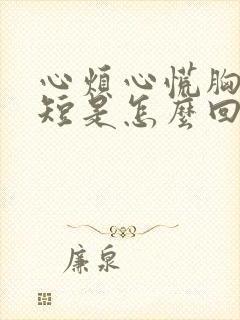 心烦心慌胸
短是怎麼回
廉泉